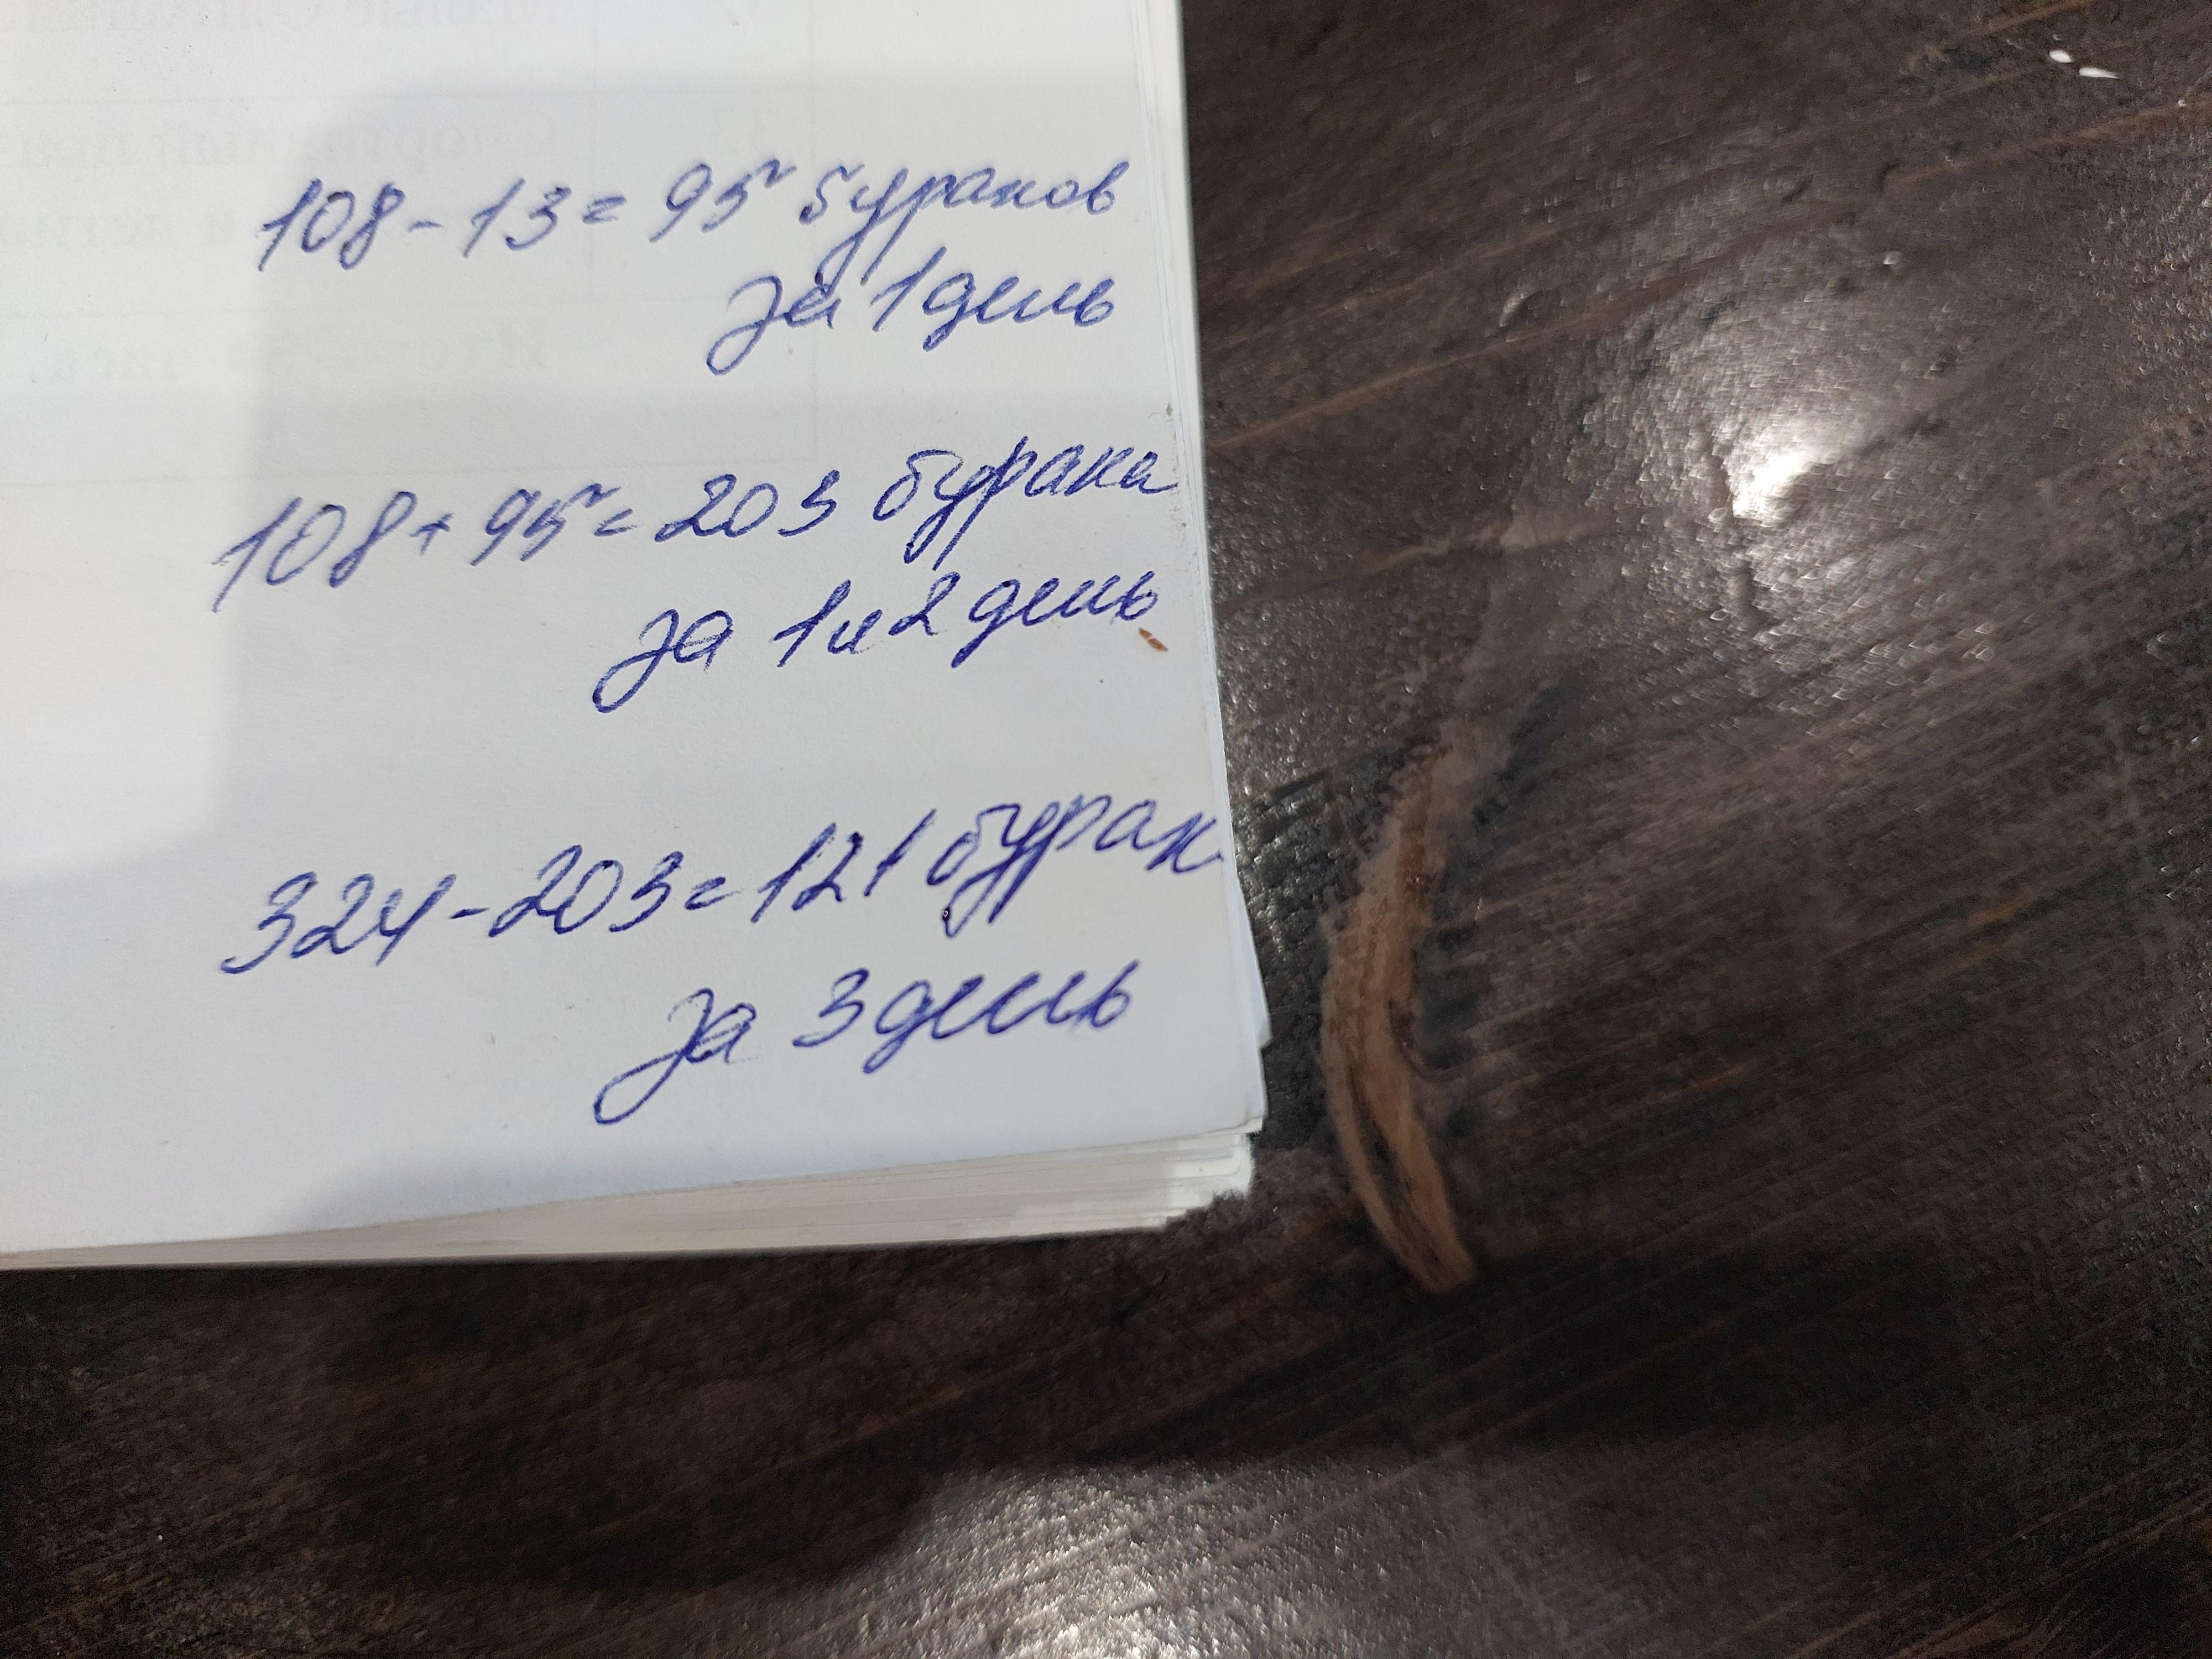 108 - 13 = 95 бураков
за 1 день
108 + 95 = 203 бурака
за 1 и 2 день
324 - 203 = 121 бурак
за 3 день